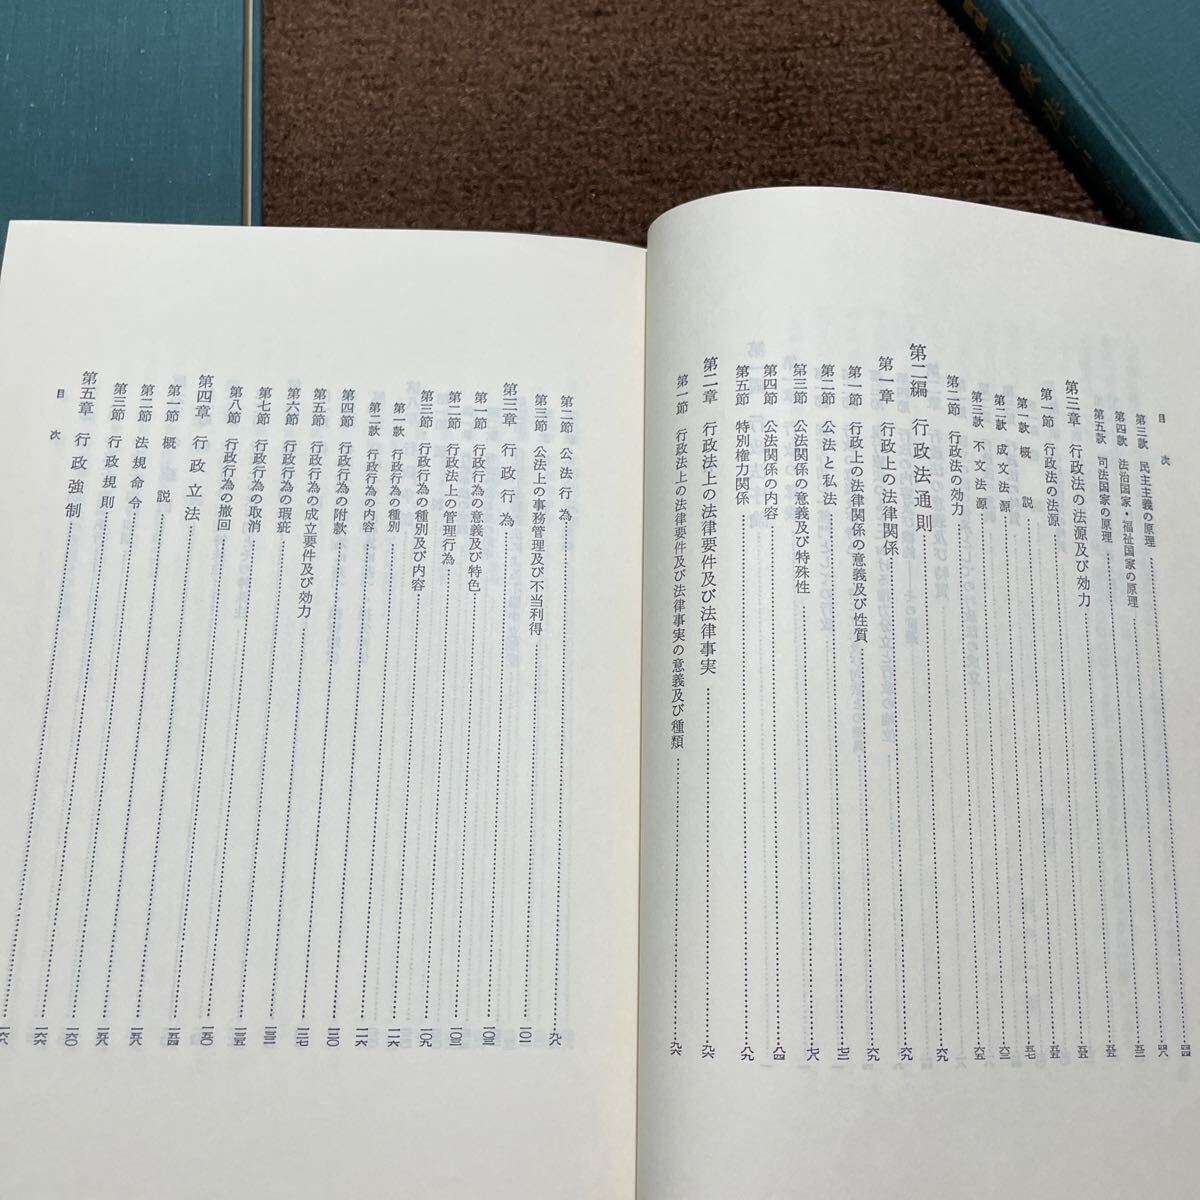 目次
第三款 民主主義の原理 四四
第四款 法治国家・福祉国家の原理 四八
第五款 司法国家の原理 五二
第三章 行政法の法源及び効力 五五
第一節 行政法の法源 五五
第一款 概説 五五
第二款 成文法源 五七
第三款 不文法源 六三
第二節 行政法の効力 六五
第二編 行政法通則 六九
第一章 行政上の法律関係 六九
第一節 行政上の法律関係の意義及び性質 六九
第二節 公法と私法 七二
第三節 公法関係の意義及び特殊性 七八
第四節 公法関係の内容 八四
第五節 特別権力関係 八九
第二章 行政法上の法律要件及び法律事実 九六
第一節 行政法上の法律要件及び法律事実の意義及び種類 九六
第二節 公法行為 九八
第三節 公法上の事務管理及び不当利得 一〇一
第三章 行政行為 一〇三
第一節 行政行為の意義及び特色 一〇三
第二節 行政法上の管理行為
第三節 行政行為の種別及び内容 一〇九
第一款 行政行為の種別
第二款 行政行為の内容 一一六
第四節 行政行為の附款
第五節 行政行為の成立要件及び効力
第六節 行政行為の瑕疵
第七節 行政行為の取消
第八節 行政行為の撤回
第四章 行政立法
第一節 概説
第二節 法規命令
第三節 行政規則
第五章 行政強制
目次